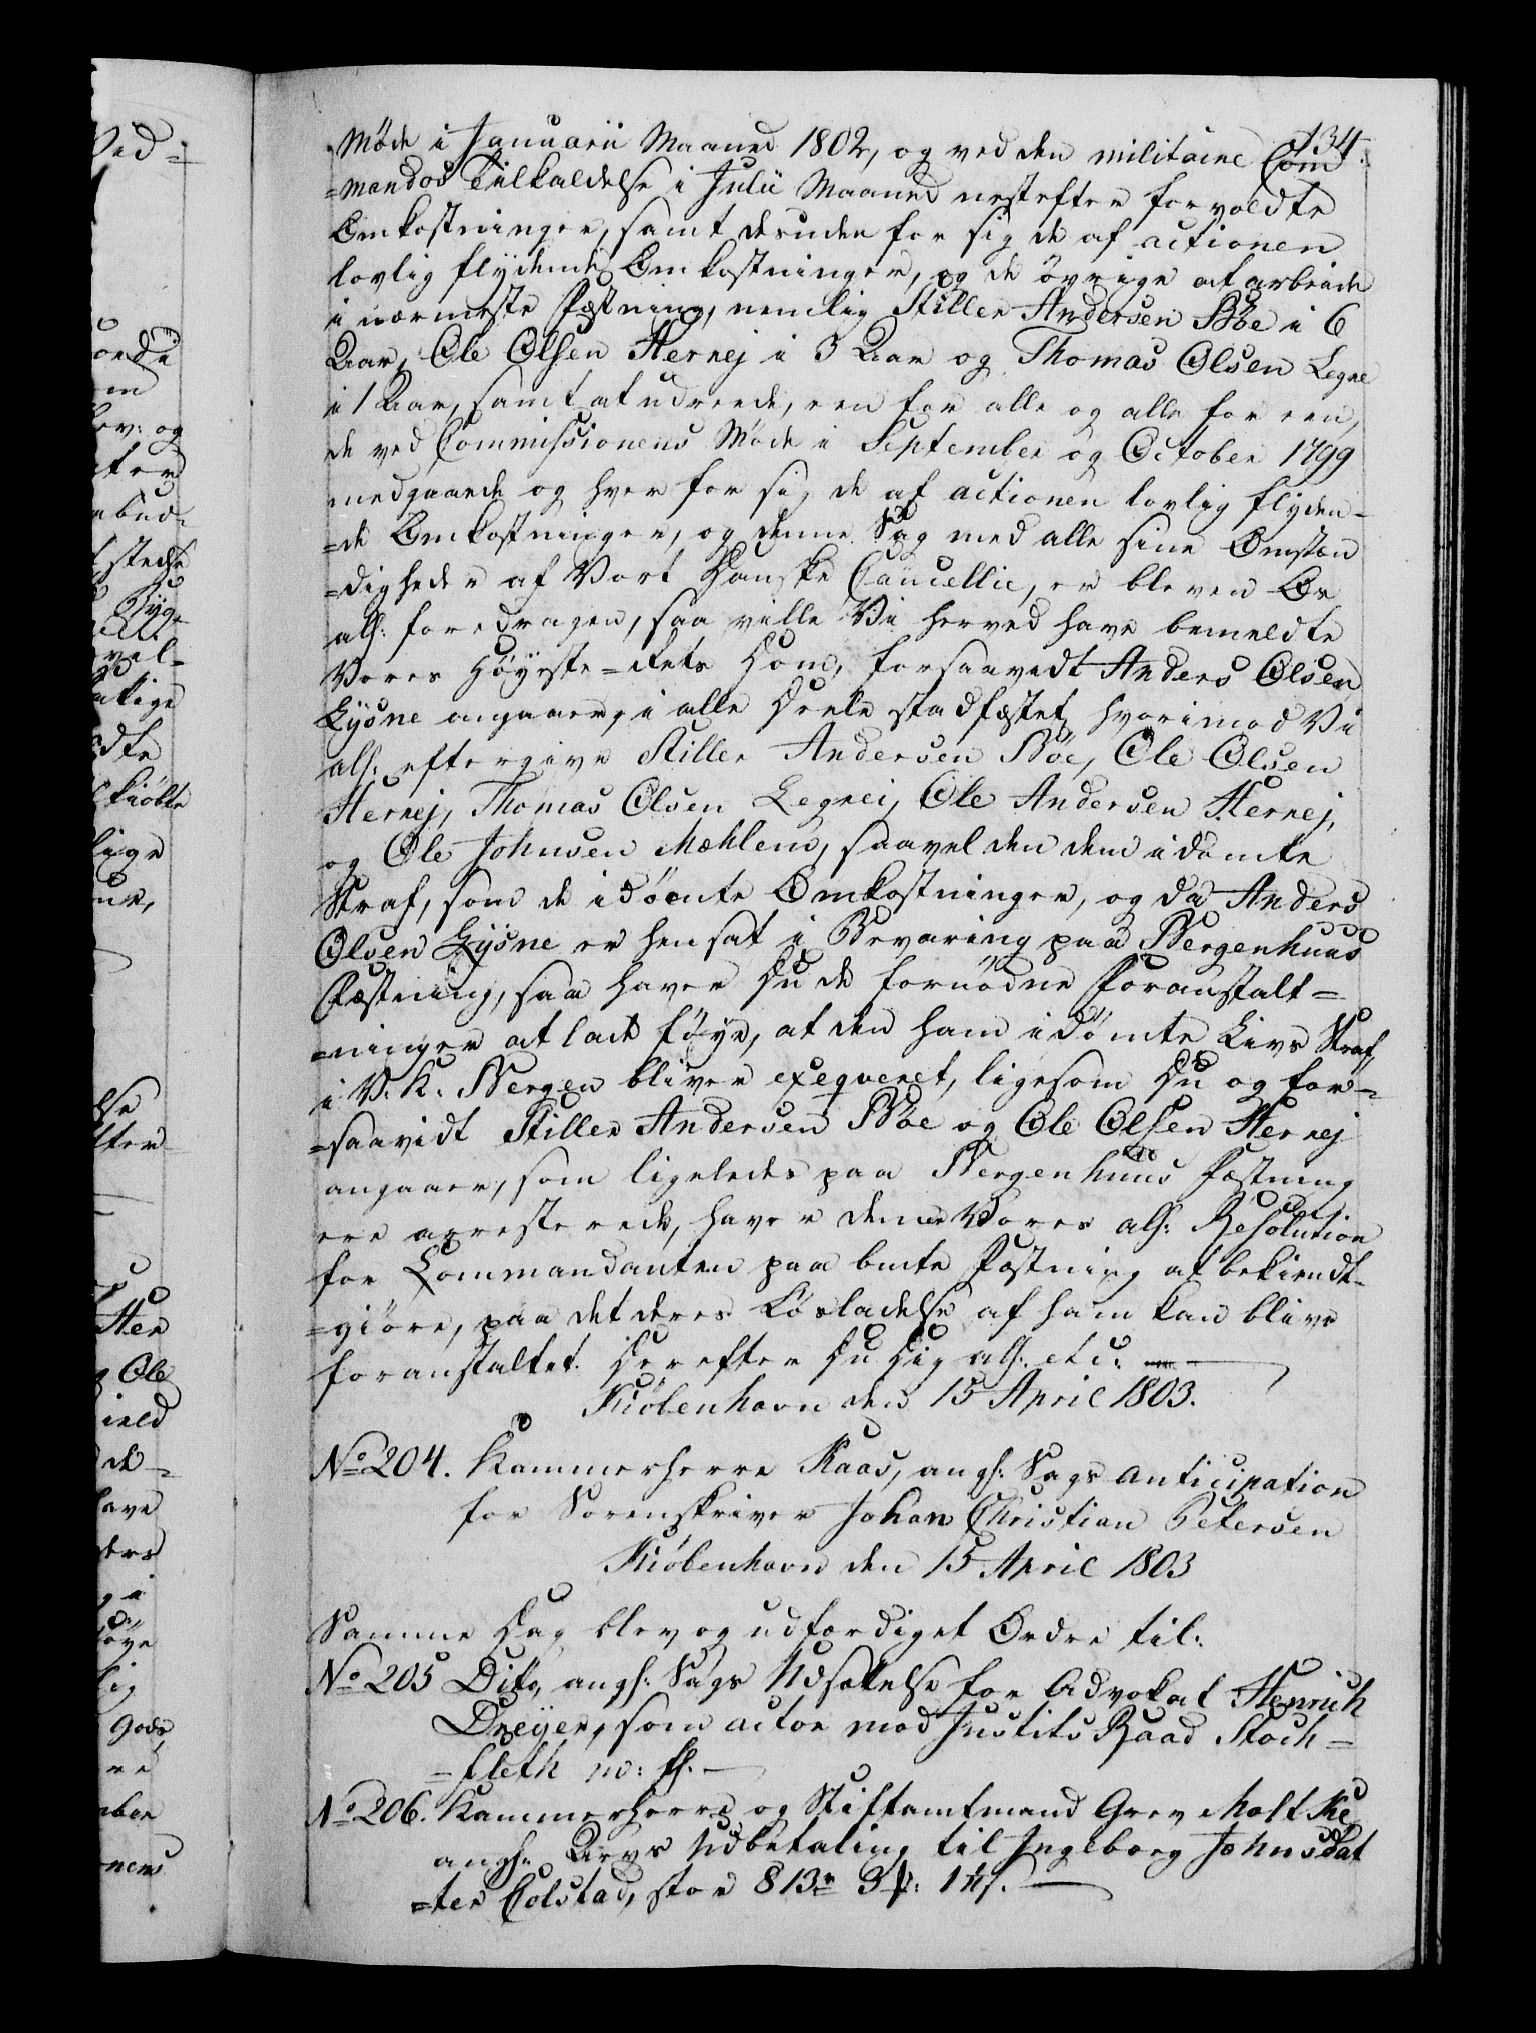 134.
Møde i Januarii Maaned 1802, og ved den militaire Com
=mandos Tilkaldelse i Julii Maaned nestefter forvoldte
Omkostninger, samt desuden for sig de af actionen
lovlig flydende Omkostninger, og de øvrige at arbeide
i nærmeste Fæstning, nemlig Stiller Andersen Bøe i 6
Aar, Ole Olsen Hernej i 3 Aar og Thomas Olsen Legre
i 1 Aar, samt at udreede, een for alle og alle for een,
de ved Commissionens Møde i September og October 1799
medgaaede og hver for sig de af actionen lovlig flyden=
=de Omkostninger, og denne Sag med alle sine Omstæn
=digheder af Vort Danske Cancellie, er bleven Os
all: foredragen, saa ville Vi herved have bemeldte
Vores Høyeste=Rets Dom, forsaavidt Anders Olsen
Lysne angaaer, i alle Deele stadfæstet, hvorimod Vi
all: eftergive Stiller Andersen Bøe, Ole Olsen
Hernej, Thomas Olsen Legrei, Ole Andersen Hernej,
og Ole Johnsen Mæhlem, saavel den dem idømte
Straf, som de idømte Omkostninger, og da Anders
Olsen Lysne er hensat i Bevaring paa Bergenhuus
Fæstning, saa haver Du de fornødne Foranstalt=
=ninger at lade føye, at den ham idømte Livs Straf,
i V. K. Bergen bliver exeqveret, ligesom Du og for=
=saavidt Stiller Andersen Bøe og Ole Olsen Hernej
angaaer, som ligeledes paa Bergenhuus Fæstning
ere arresterede, haver denne Vores all: Resolution
for Commandanten paa bmte Fæstning at bekiendt=
=giøre, paa det deres Løsladelse af ham kan blive
foranstaltet. Derefter Du Dig all: etc:
Kiøbenhavn den 15 April 1803.
No 204. Kammerherre Kaas, angl: Sags Anticipation
for Sorenskriver Johan Christian Petersen
Kiøbenhavn den 15 April 1803
Samme Dag blev og udfærdiget Ordre til:
No 205 Dito, angl: Sags Udsættelse for Advokat Henrich
Dreyer, som actor mod Justits Raad Stoch=
=fleth m: fl.
No 206. Kammerherre og Stiftamtmand Grev Moltke
angl: Arvs Udbetaling til Ingeborg Johnsdat
=ter Colstad, stor 813 r 3 ß: 14 s.